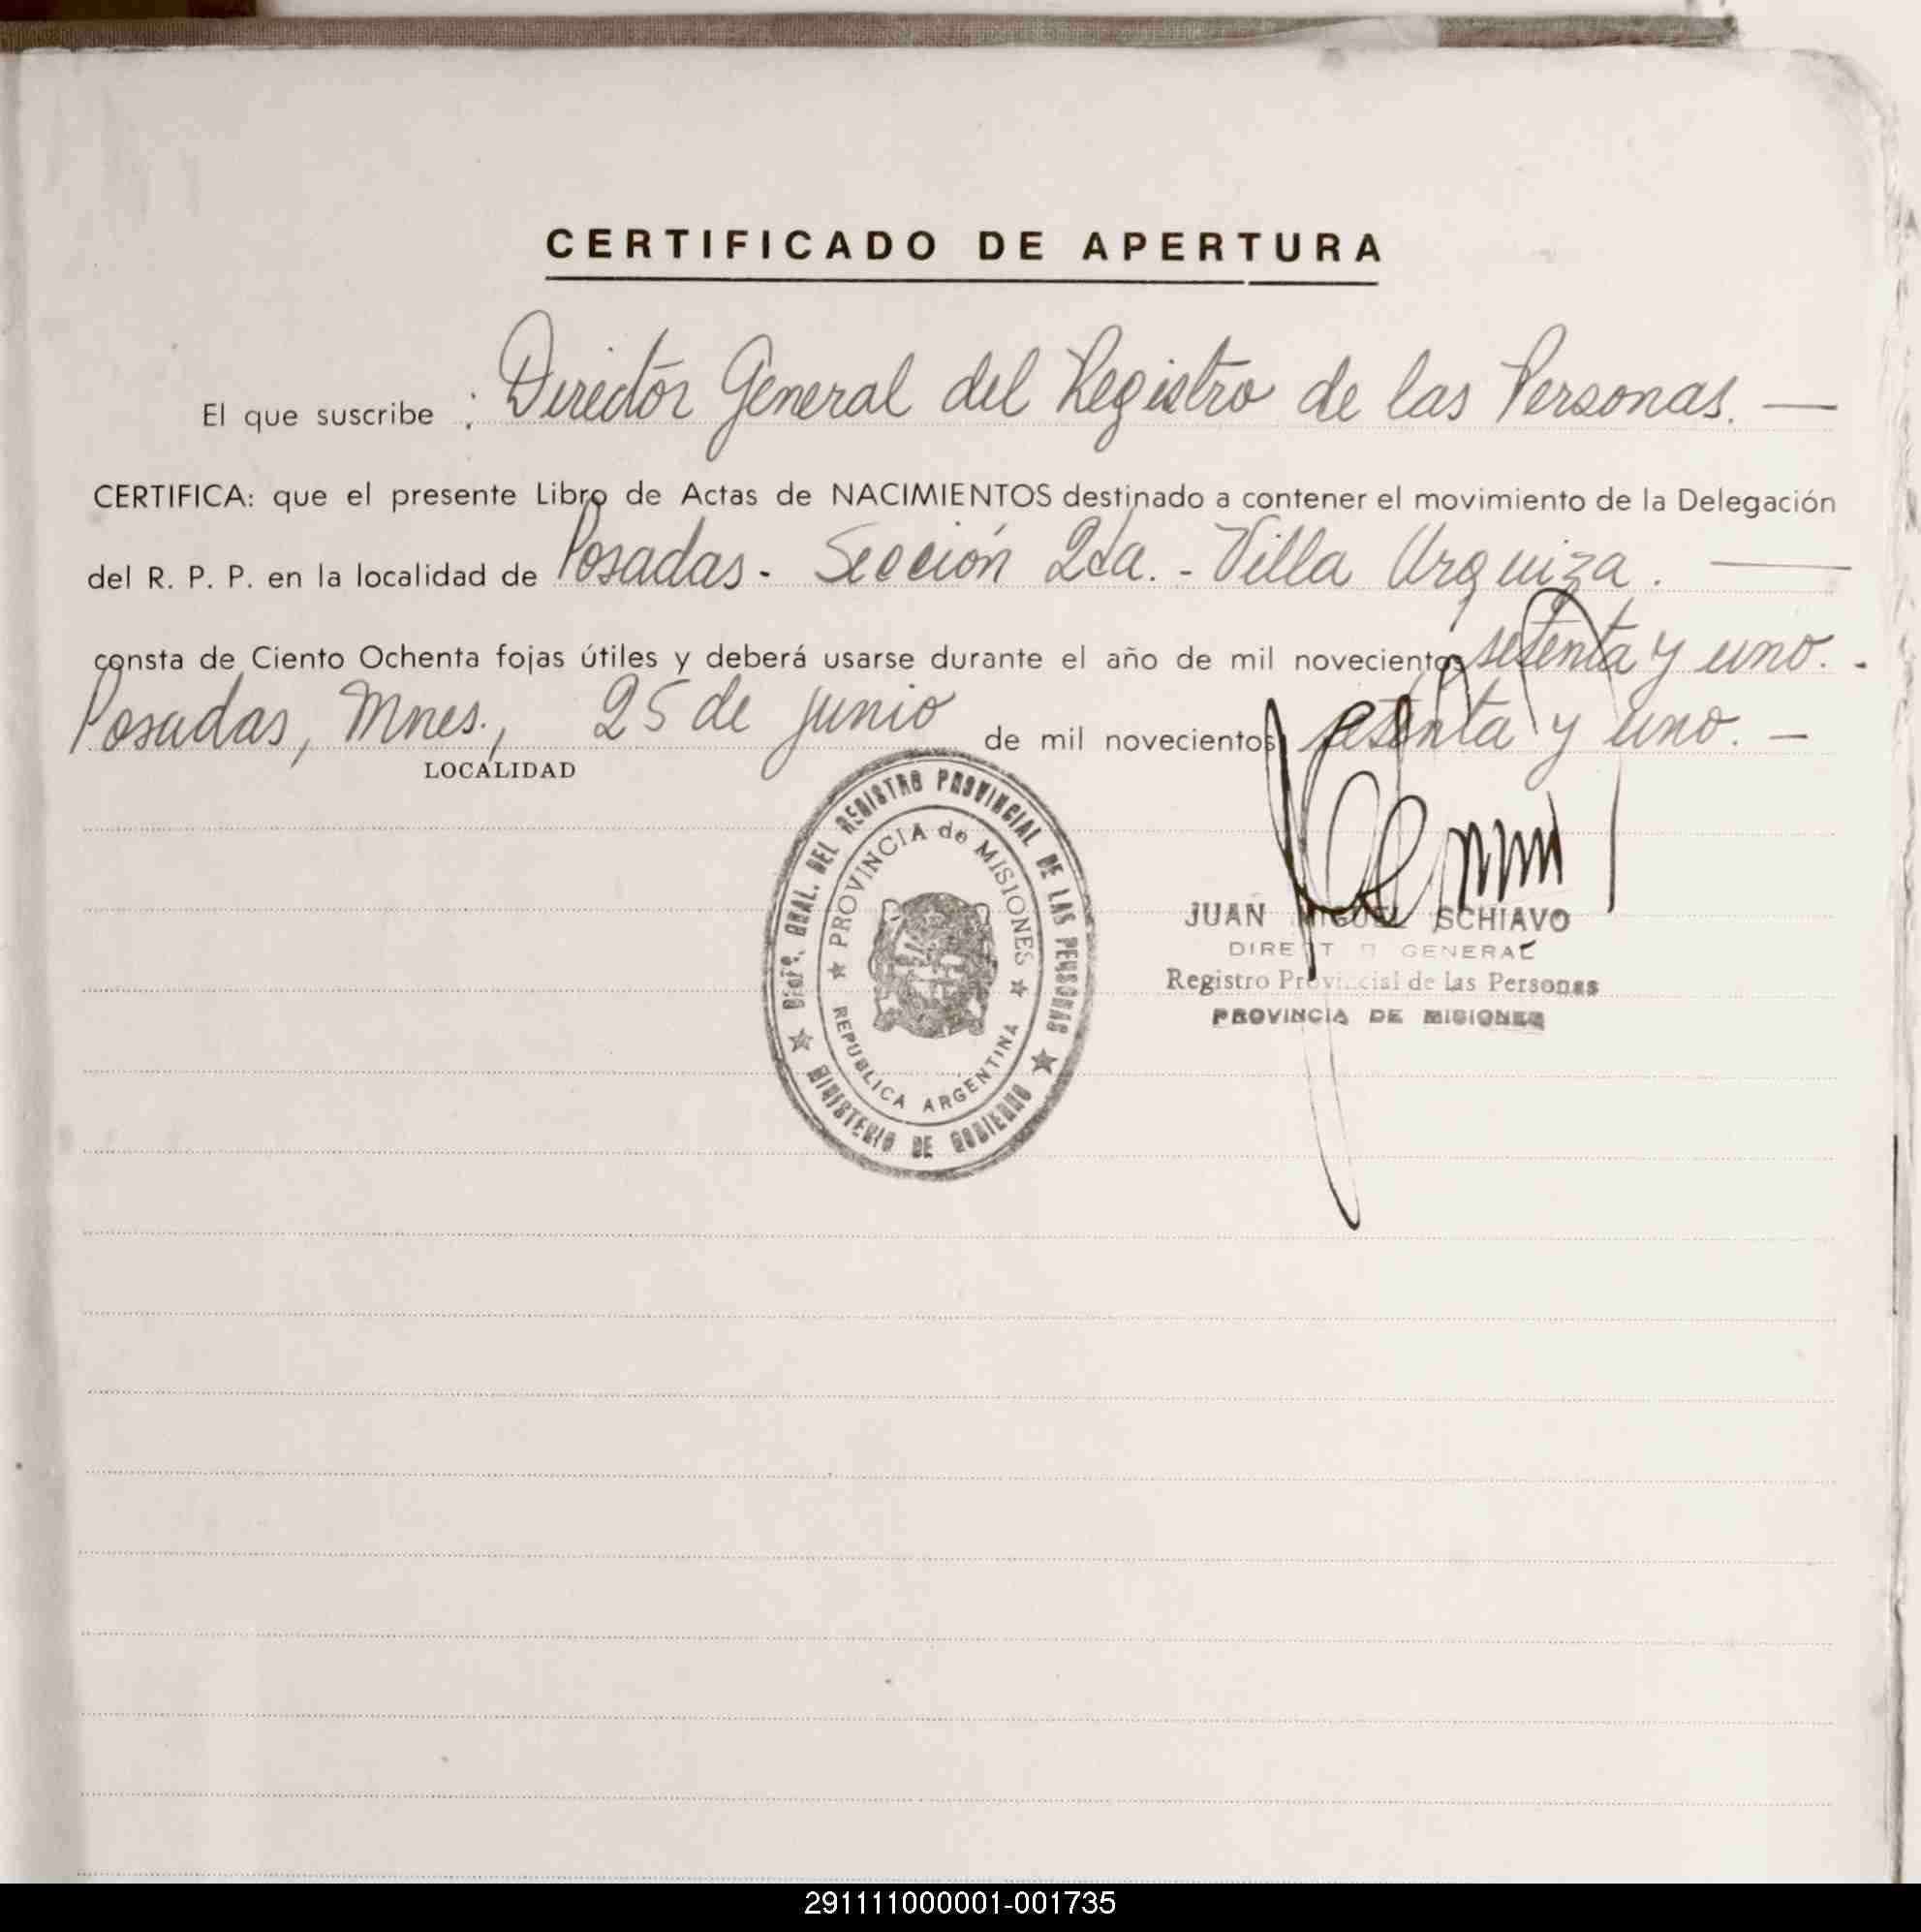 CERTIFICADO DE APERTURA
El que suscribe : Director General del Registro de las Personas. —
CERTIFICA: que el presente Libro de Actas de NACIMIENTOS destinado a contener el movimiento de la Delegación
del R. P. P. en la localidad de Posadas - Sección 2da. - Villa Urquiza. —
consta de Ciento Ochenta fojas útiles y deberá usarse durante el año de mil novecientos setenta y uno. -
Posadas, Mnes., 25 de junio de mil novecientos setenta y uno. —
LOCALIDAD
DEL REGISTRO PROVINCIAL DE LAS PERSONAS
MINISTERIO DE GOBIERNO
PROVINCIA de MISIONES
REPUBLICA ARGENTINA
JUAN MIGUEL SCHIAVO
DIRECTOR GENERAL
Registro Provincial de las Personas
PROVINCIA DE MISIONES
291111000001-001735